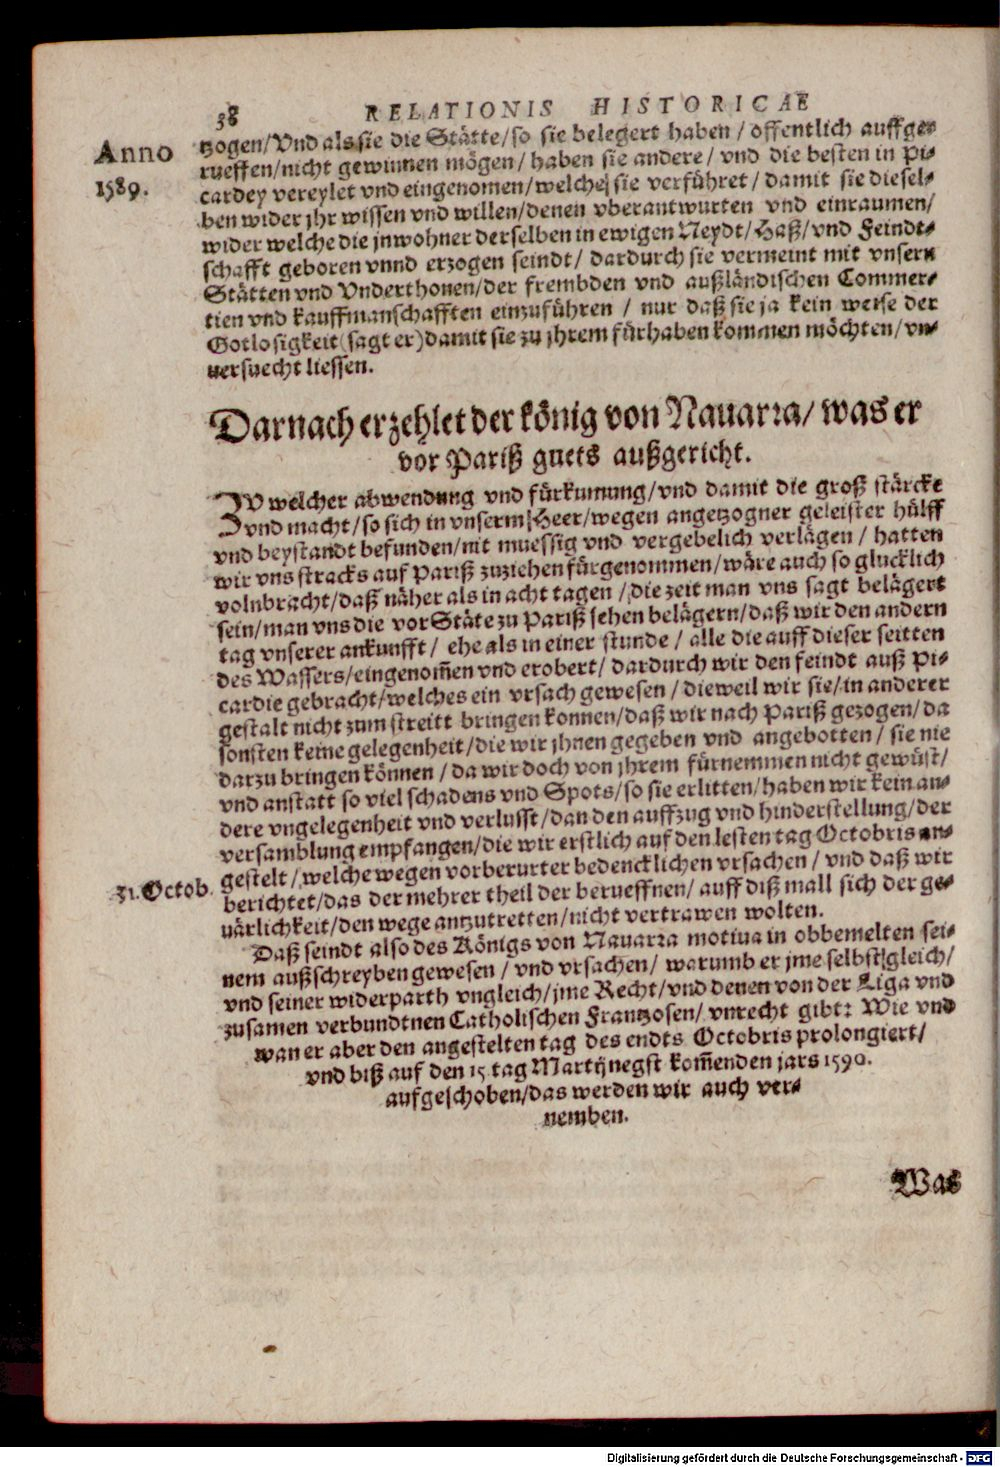 38 RELATIONIS HISTORICAE
Anno
1589.
tzogen/Vnd als sie die Stätte/so sie belegert haben/offentlich auffge-
rueffen/nicht gewinnen mögen/haben sie andere/vnd die besten in Pi-
cardey vereylet vnd eingenomen/welche sie verführet/damit sie diesel-
ben wider jhr wissen vnd willen/denen vberantwurten vnd einraumen/
wider welche die jnwohner derselben in ewigen Neydt/Haß/vnd Feindt-
schafft geboren vnnd erzogen seindt/dardurch sie vermeint mit vnsern
Stätten vnd Vnderthonen/der frembden vnd außländischen Commer-
tien vnd kauffmanschafften einzuführen/nur daß sie ja kein weise der
Gotlosigkeit (sagt er) damit sie zu jhrem fürhaben kommen möchten/vn-
uersuecht liessen.
Darnach erzehlet der könig von Nauarra/was er
vor Pariß guets außgericht.
ZV welcher abwendung vnd fürkumung/vnd damit die groß stärcke
vnd macht/so sich in vnserm Heer/wegen angetzogner geleister hülff
vnd beystandt befunden/nit muessig vnd vergebelich verlägen/hatten
wir vns stracks auf Pariß zuziehen fürgenommen/wäre auch so glucklich
volnbracht/daß näher als in acht tagen/die zeit man vns sagt belägert
sein/man vns die vor Stäte zu Pariß sehen belägern/daß wir den andern
tag vnserer ankunfft/ehe als in einer stunde/alle die auff dieser seitten
des Wassers/eingenom̄en vnd erobert/dardurch wir den feindt auß Pi-
cardie gebracht/welches ein vrsach gewesen/dieweil wir sie/in anderer
gestalt nicht zum streitt bringen konnen/daß wir nach Pariß gezogen/da
sonsten keine gelegenheit/die wir jhnen gegeben vnd angebotten/sie nie
darzu bringen können/da wir doch von jhrem fürnemmen nicht gewüst/
vnd anstatt so viel schadens vnd Spots/so sie erlitten/haben wir kein an-
dere vngelegenheit vnd verlusst/dan den auffzug vnd hinderstellung/der
versamblung empfangen/die wir erstlich auf den lesten tag Octobris an-
gestelt/welche wegen vorberurter bedencklichen vrsachen/vnd daß wir
31. Octob.
berichtet/das der mehrer theil der berueffnen/auff diß mall sich der ge-
uärlichkeit/den wege antzutretten/nicht vertrawen wolten.
Daß seindt also des Königs von Nauarra motiua in obbemelten sei-
nem außschreyben gewesen/vnd vrsachen/warumb er jme selbst gleich/
vnd seiner widerparth vngleich/jme Recht/vnd denen von der Liga vnd
zusamen verbundtnen Catholischen Frantzosen/vnrecht gibt: Wie vnd
wan er aber den angestelten tag des endts Octobris prolongiert/
vnd biß auf den 15 tag Martij negst kom̄enden jars 1590.
aufgeschoben/das werden wir auch ver-
nemben.
Was
Digitalisierung gefördert durch die Deutsche Forschungsgemeinschaft - DFG